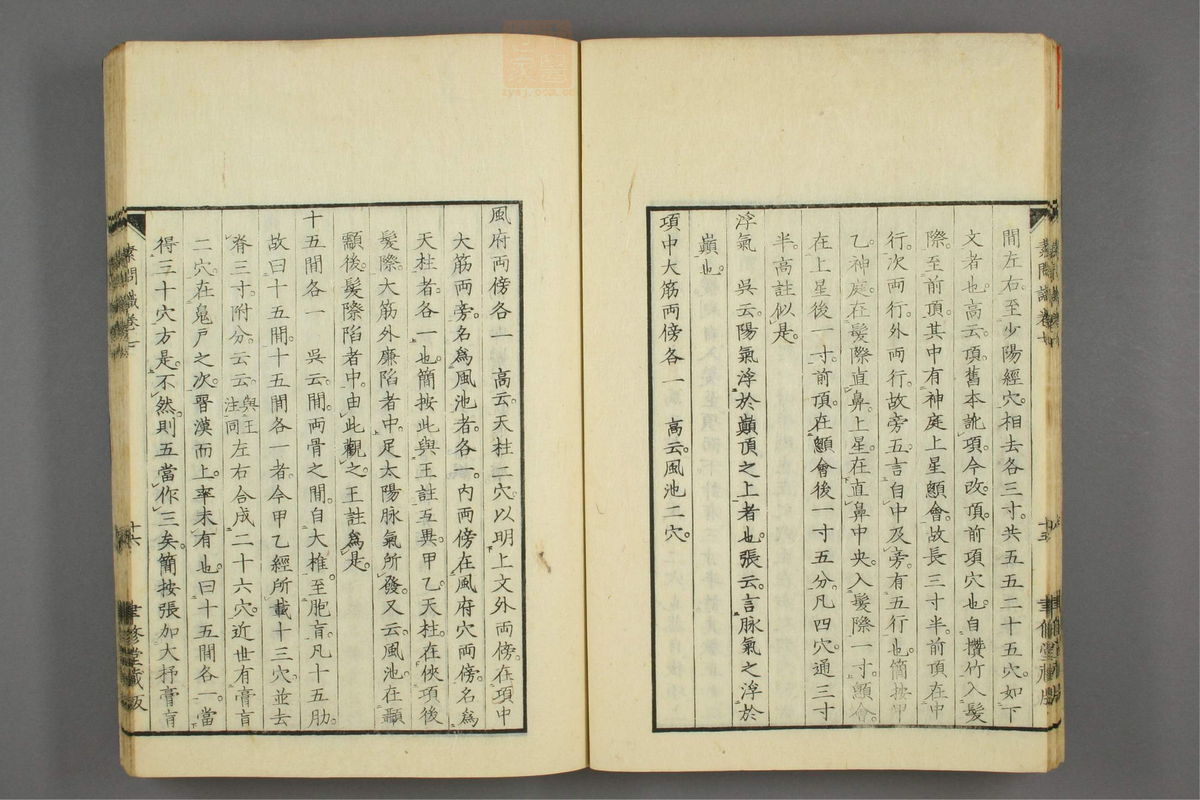 間左右至少陽經穴相去各三寸共五五二十五穴如下
文者也高云頂舊本訛項今改頂前項穴也自攢竹入髮
際至前頂其中有神庭上星顖會故長三寸半前頂在中
行次兩行外兩行故旁五言自中及旁有五行也簡按甲
乙神庭在髮際直鼻上星在直鼻中央入髮際一寸顖會
在上星後一寸前頂在顖會後一寸五分凡四穴通三寸
半高註似是
浮氣 吳云陽氣浮於巔頂之上者也張云言脉氣之浮於
巔也
項中大筋兩傍各一 高云風池二穴
風府兩傍各一 高云天柱二穴以明上文外兩傍在項中
大筋兩旁名爲風池者各一內兩傍在風府穴兩傍名爲
天柱者各一也簡按此與王註互異甲乙天柱在俠項後
髮際大筋外廉陷者中足太陽脉氣所發又云風池在顳
顬後髮際陷者中由此觀之王註爲是
十五間各一 吳云間兩骨之間自大椎至胞肓凡十五肋
故曰十五間十五間各一者今甲乙經所載十三穴並去
脊三寸附分云云與王注同左右合成二十六穴近世有膏肓
二穴在鬼戶之次晉漢而上率未有也曰十五間各一當
得三十穴方是不然則五當作三矣簡按張加大抒膏肓
素問識卷七
十五
素問識卷七
十六
聿修堂藏版